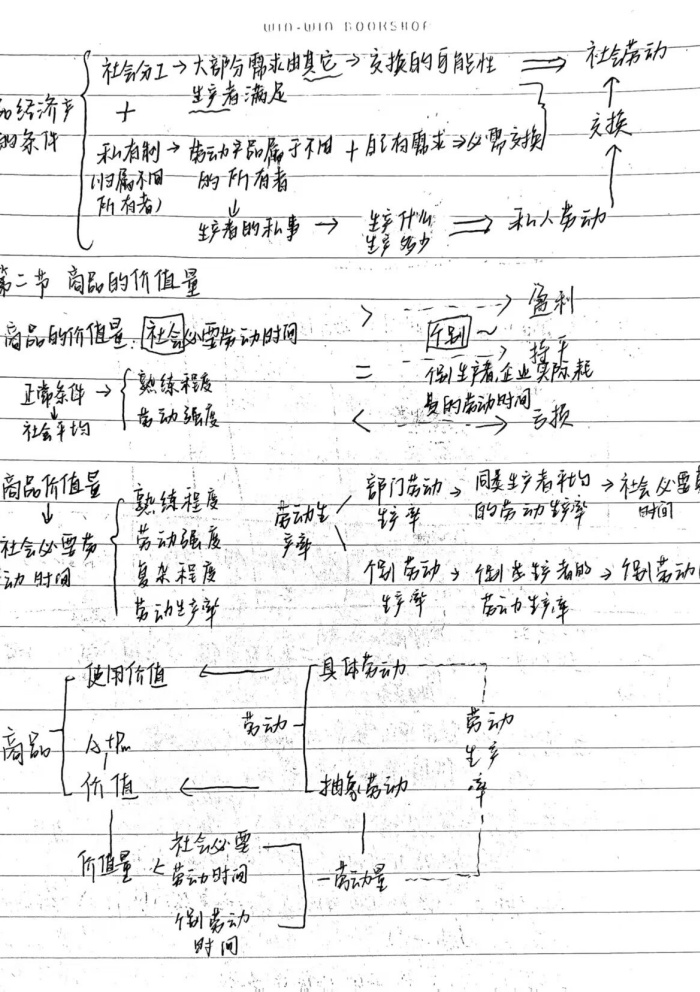 WIN-WIN BOOKSHOP
社会分工→大部分需求由其它→交换的可能性 ⇒ 社会劳动
生产者满足
品经济产
的条件
+
↑
交换
私有制→劳动产品属于不同+自己有需求⇒必需交换
(归属不同
所有者)
的所有者
↓
↑
生产者的私事 → 生产什么
生产多少
⇒ 私人劳动
第二节 商品的价值量
> ---→ 盈利
商品的价值量:社会必要劳动时间
个别~
= ---→ 持平
个别生产者,企业实际耗
费的劳动时间
< ---→ 亏损
正常条件→
↓
社会平均
熟练程度
劳动强度
商品价值量
↓
社会必要劳
动时间
熟练程度
劳动强度
复杂程度
劳动生产率
劳动生
产率
部门劳动
生产率
→ 同类生产者平均
的劳动生产率
→ 社会必要
时间
个别劳动
生产率
→ 个别生产者的
劳动生产率
→ 个别劳动
商品
使用价值 ← 具体劳动
劳动
劳动
生产
率
价值 ← 抽象劳动
价值量
社会必要
劳动时间
劳动量
个别劳动
时间